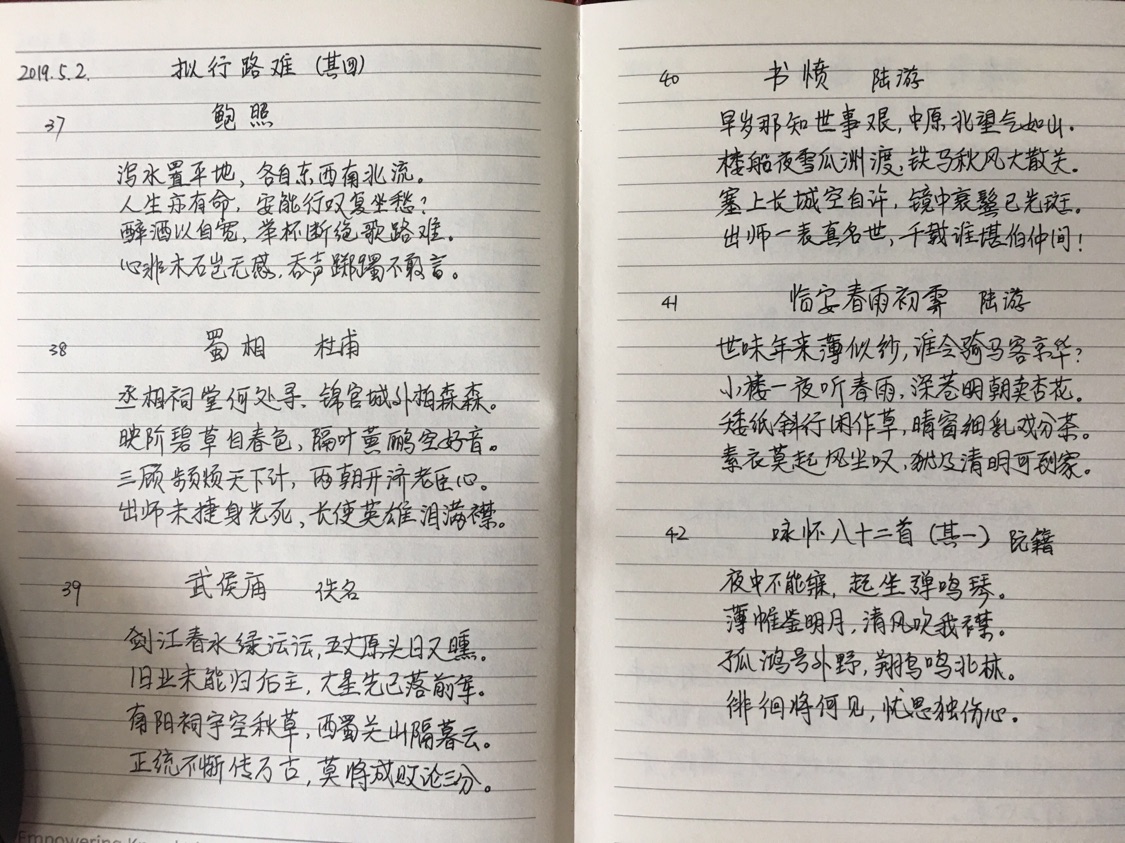 2019.5.2. 拟行路难（其四）
37 鲍照
泻水置平地，各自东西南北流。
人生亦有命，安能行叹复坐愁？
酹酒以自宽，举杯断绝歌路难。
心非木石岂无感，吞声踯躅不敢言。
38 蜀相 杜甫
丞相祠堂何处寻、锦官城外柏森森。
映阶碧草自春色，隔叶黄鹂空好音。
三顾频烦天下计，两朝开济老臣心。
出师未捷身先死，长使英雄泪满襟。
39 武侯庙 佚名
剑江春水绿沄沄，五丈原头日又曛。
旧业未能归后主，大星先已落前军。
南阳祠宇空秋草，西蜀关山隔暮云。
正统不惭传万古，莫将成败论三分。
Empowering
40 书愤 陆游
早岁那知世事艰，中原北望气如山.
楼船夜雪瓜洲渡，铁马秋风大散关。
塞上长城空自许，镜中衰鬓已先斑。
出师一表真名世，千载谁堪伯仲间！
41 临安春雨初霁 陆游
世味年来薄似纱，谁令骑马客京华？
小楼一夜听春雨，深巷明朝卖杏花。
矮纸斜行闲作草，晴窗细乳戏分茶。
素衣莫起风尘叹，犹及清明可到家。
42 咏怀八十二首（其一）阮籍
夜中不能寐，起坐弹鸣琴。
薄帷鉴明月，清风吹我襟。
孤鸿号外野，翔鸟鸣北林。
徘徊将何见，忧思独伤心。